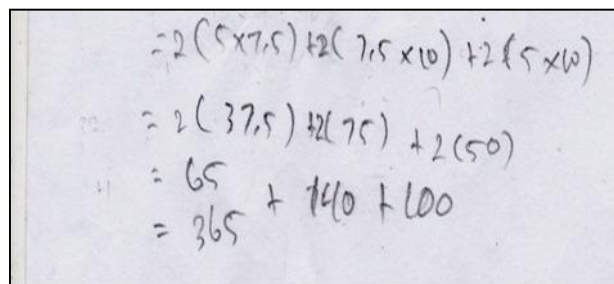 =2(5×7,5)+2(7,5×10)+2(5×10)
=2(37,5)+2(75)+2(50)
=65+140+100
=365